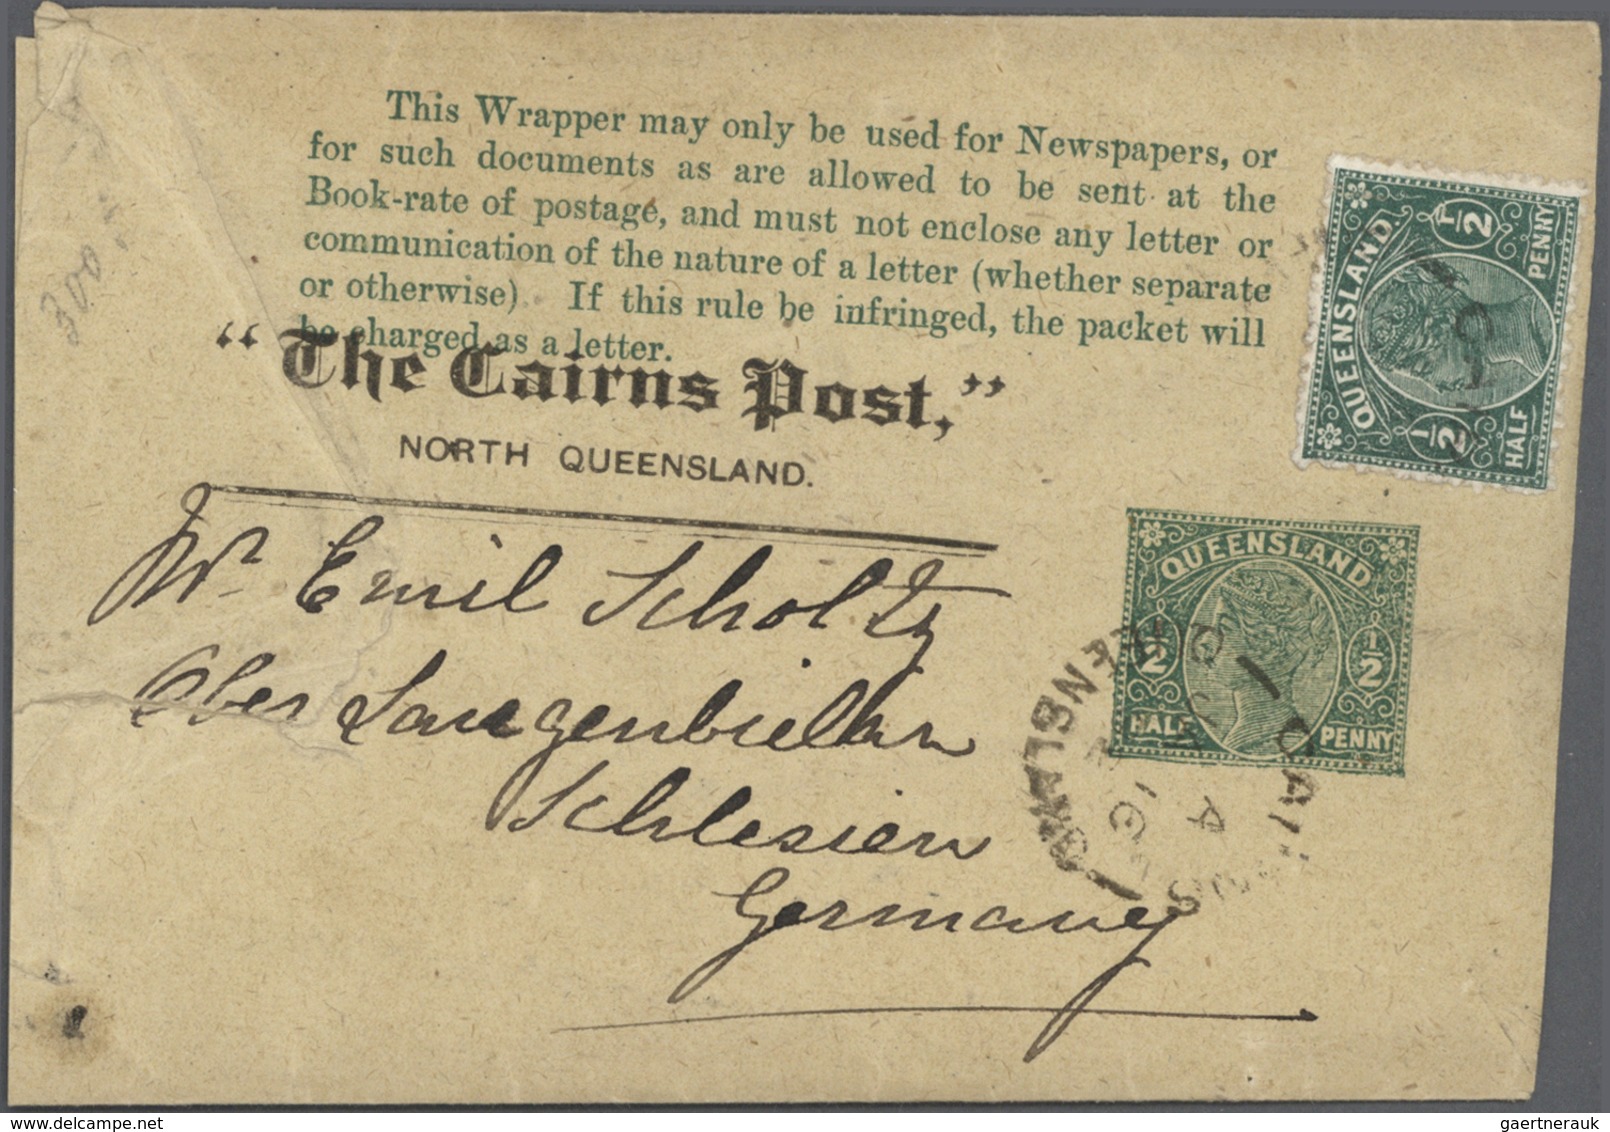 This Wrapper may only be used for Newspapers, or
for such documents as are allowed to be sent at the
Book-rate of postage, and must not enclose any letter or
communication of the nature of a letter (whether separate
or otherwise). If this rule be infringed, the packet will
be charged as a letter.
“The Cairns Post,”
NORTH QUEENSLAND.
Mr Emil Scholtz
Ober Langenbielau
Schlesien
Germany
QUEENSLAND
1/2 1/2
HALF PENNY
QUEENSLAND
1/2 1/2
HALF PENNY
QUEENSLAND
300
gaertnerauk